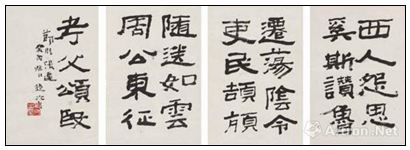 西人怨思
奚斯讚魯
遷蕩陰令
吏民頡頏
隨送如雲
周公東征
考父頌殷
節臨張遷
Artron.Net